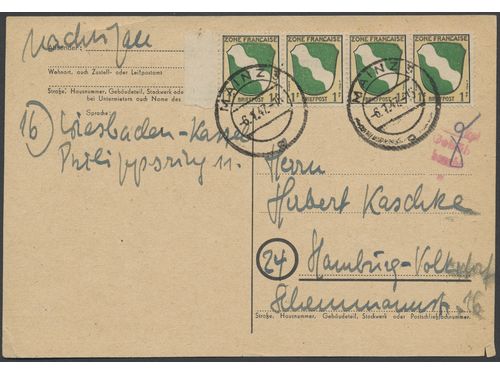 Nachnahme
Absender:
Wohnort, auch Zustell- oder Leitpostamt
Straße, Hausnummer, Gebäudeteil, Stockwerk oder
bei Untermietern auch Name des
Sprache:
16) Wiesbaden-
Philippsring 11.
ZONE FRANÇAISE ZONE FRANÇAISE ZONE FRANÇAISE ZONE FRANÇAISE
BRIEFPOST 1F BRIEFPOST 1F BRIEFPOST 1F BRIEFPOST 1F
MAINZ
-6.1.47.
MAINZ
-6.1.47.
Herrn
Herbert Kaschke
24 Hamburg-Volksdorf
16
Straße, Hausnummer, Gebäudeteil, Stockwerk oder Postschließfachnummer.